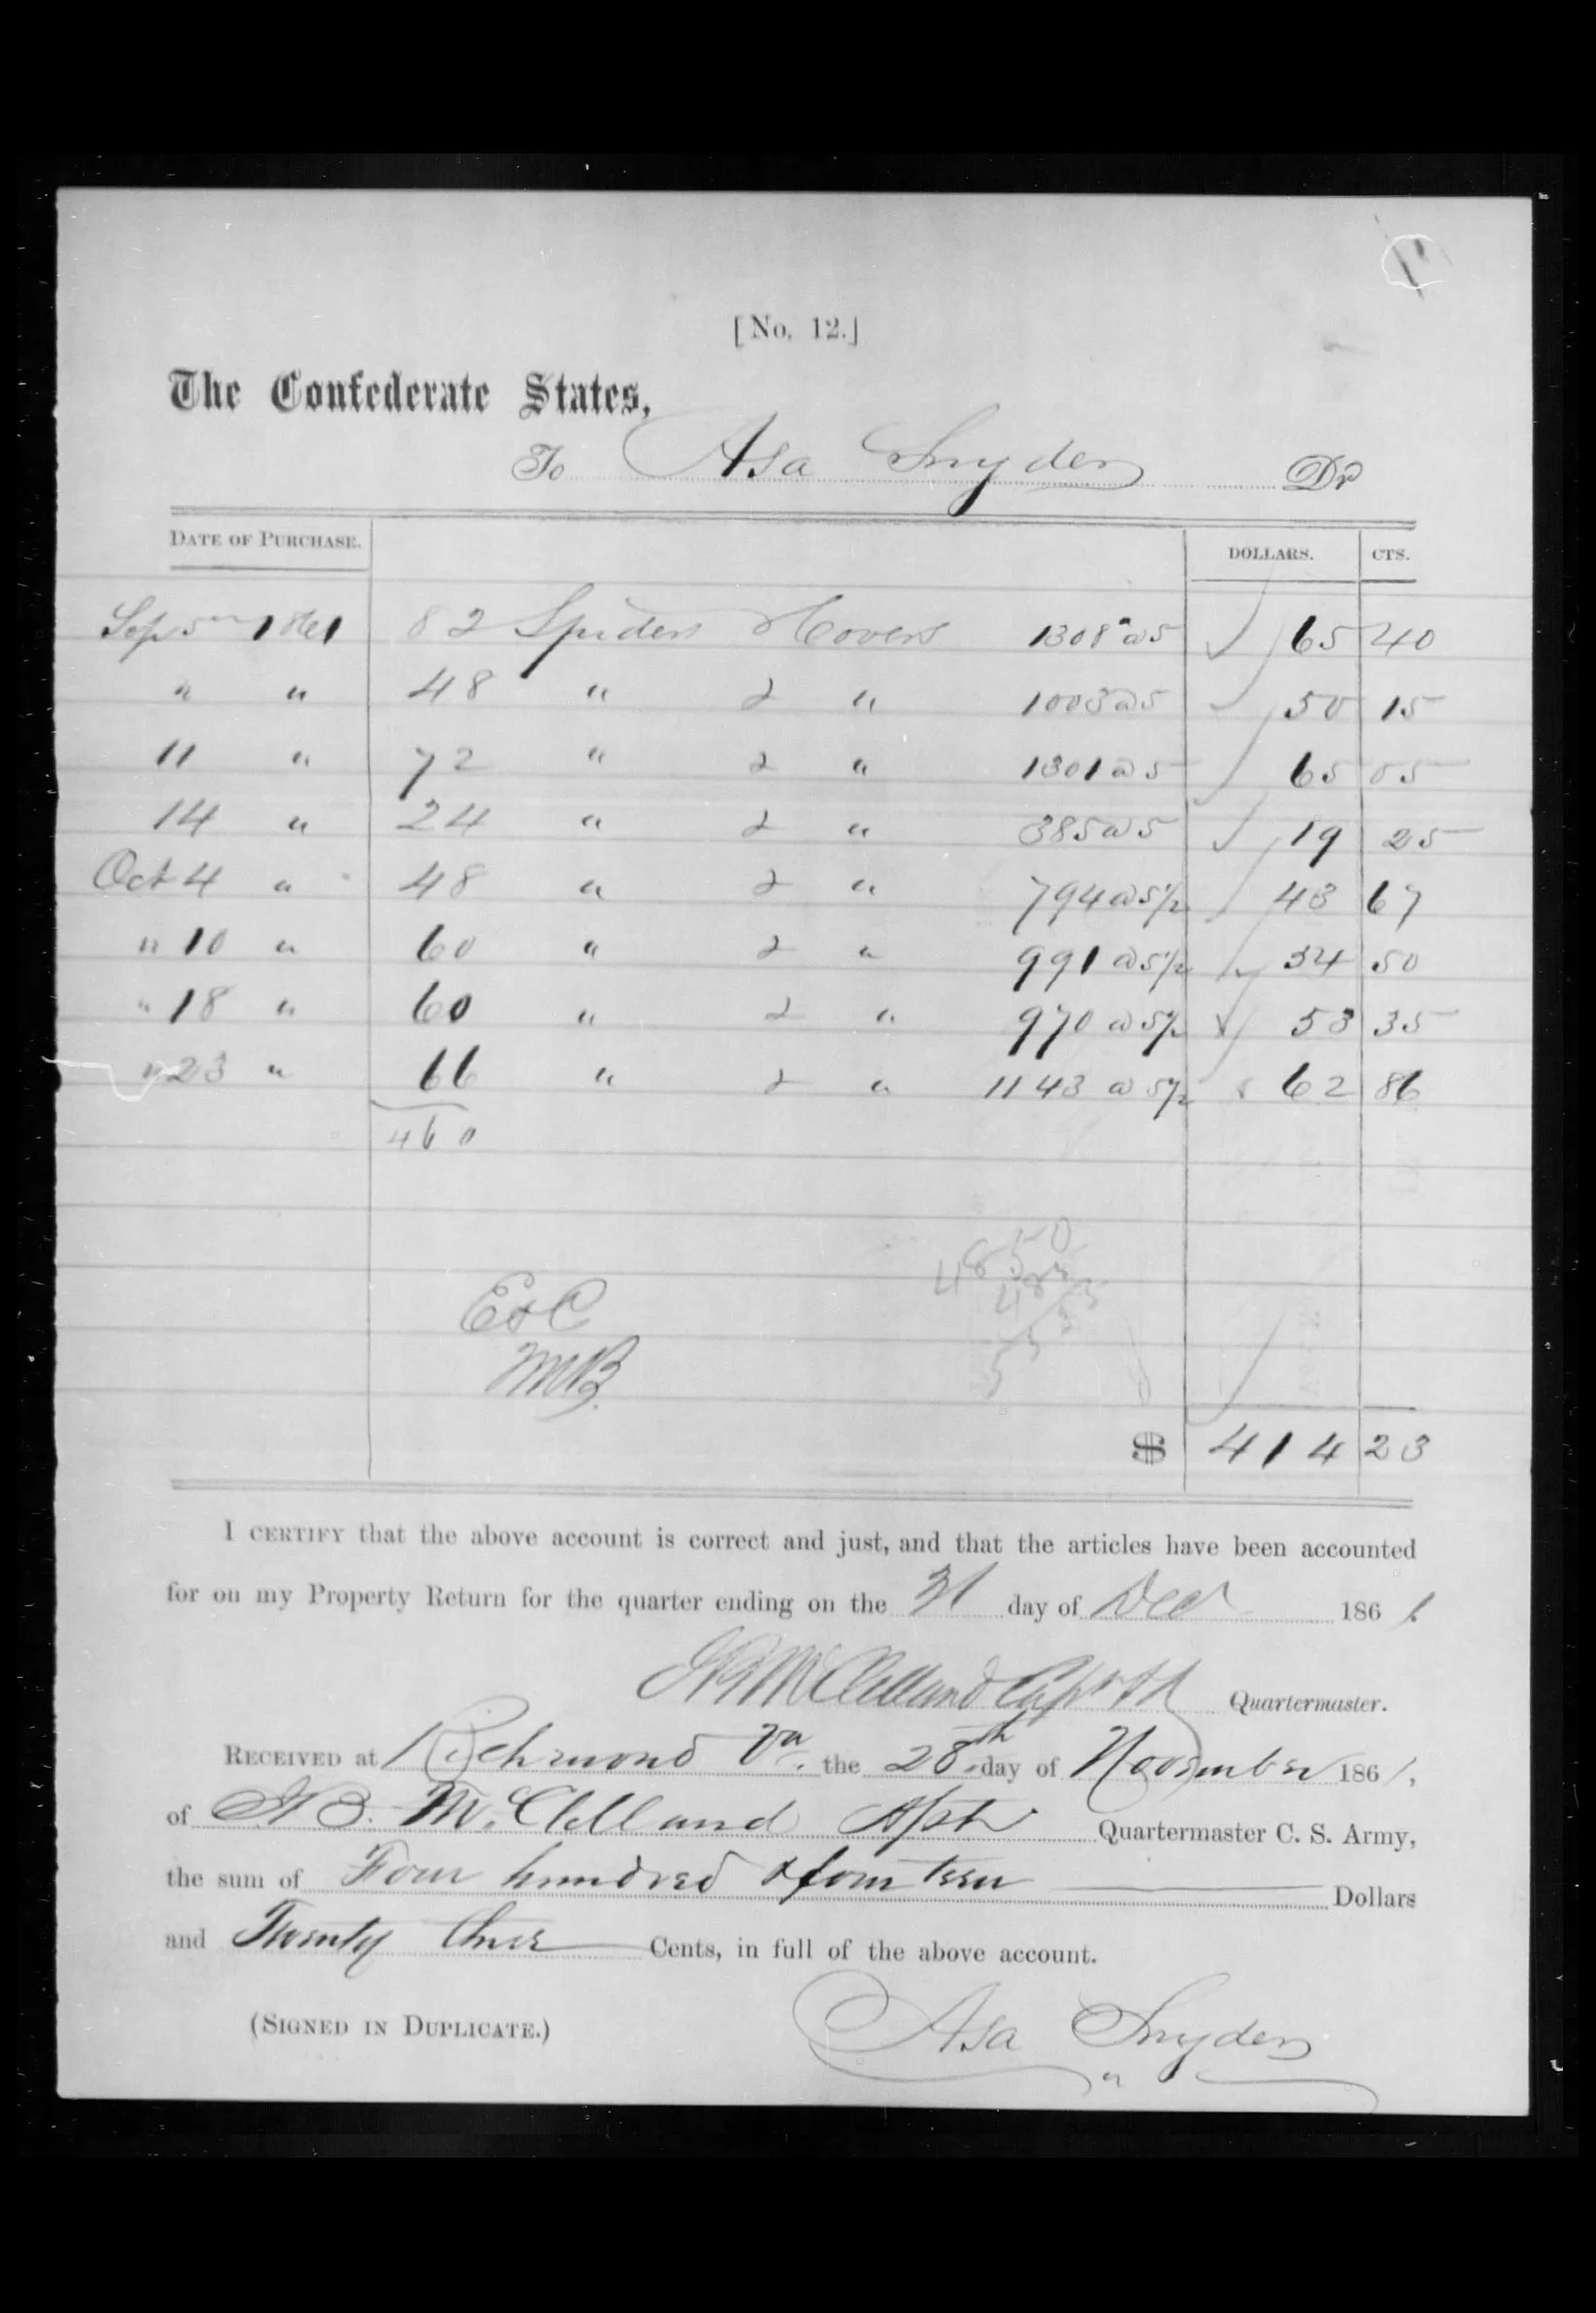 [No. 12.]
The Confederate States,
To Asa Snyder Dr
DATE OF PURCHASE. DOLLARS. CTS.
Sep 5 1861 82 Spiders & Covers 1308 @ 5 65 40
" " 48 " & " 1003 @ 5 50 15
11 " 72 " & " 1301 @ 5 65 05
14 " 24 " & " 385 @ 5 19 25
Oct 4 " 48 " & " 794 @ 5 1/2 43 67
" 10 " 60 " & " 991 @ 5 1/2 54 50
" 18 " 60 " & " 970 @ 5 1/2 53 35
" 23 " 66 " & " 1143 @ 5 1/2 62 86
460
4850
485
E & C
5323
MB
$ 414 23
I CERTIFY that the above account is correct and just, and that the articles have been accounted
for on my Property Return for the quarter ending on the 31 day of Dec 1861.
McClelland Capt Quartermaster.
RECEIVED at Richmond Va. the 28th day of November 1861,
of B. McClelland Quartermaster C. S. Army,
the sum of Four hundred & fourteen Dollars
and Twenty three Cents, in full of the above account.
(SIGNED IN DUPLICATE.) Asa Snyder